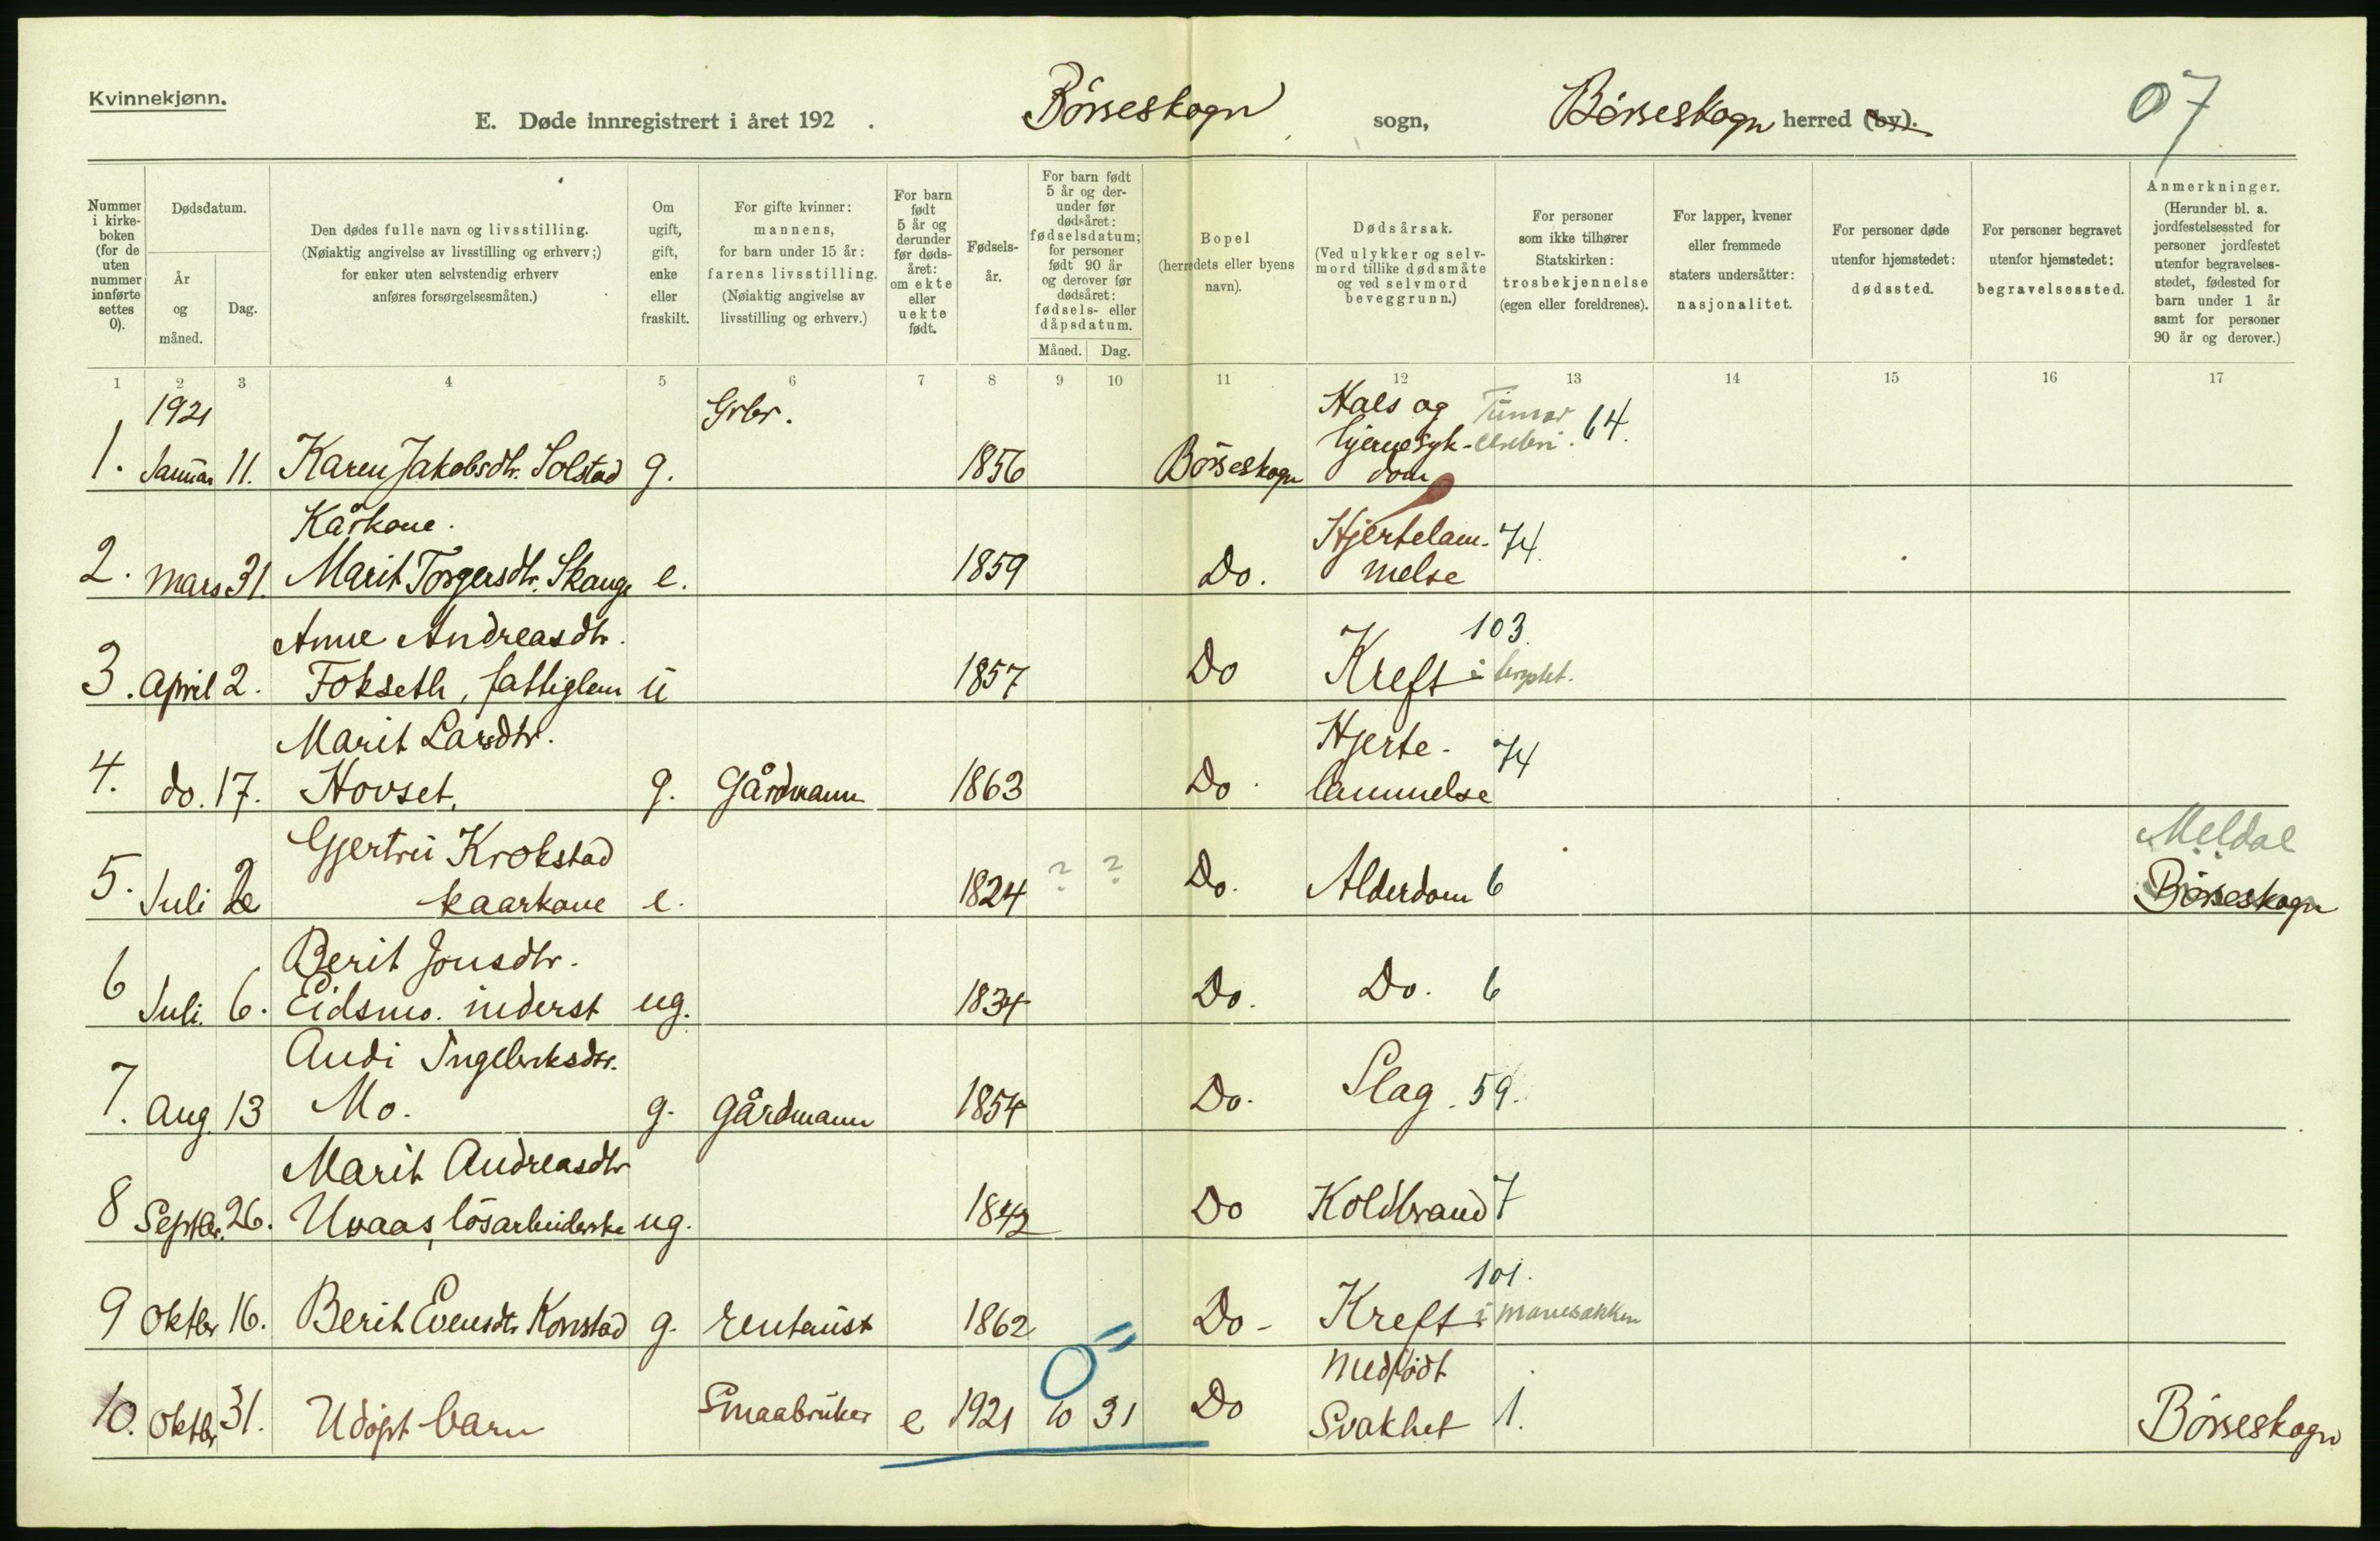 Kvinnekjønn.
E. Døde innregistrert i året 192 . Børseskogn sogn, Børseskogn herred (by). 07
Nummer i kirke-boken (for de uten nummer innførte settes 0).
Dødsdatum.
År og måned.
Dag.
Den dødes fulle navn og livsstilling.
(Nøiaktig angivelse av livsstilling og erhverv;)
for enker uten selvstendig erhverv
anføres forsørgelsesmåten.)
Om ugift, gift, enke eller fraskilt.
For gifte kvinner:
mannens,
for barn under 15 år:
farens livsstilling.
(Nøiaktig angivelse av
livsstilling og erhverv.)
For barn født 5 år og derunder før døds-året: om ekte eller uekte født.
Fødsels-år.
For barn født 5 år og der-under før dødsåret: fødselsdatum; for personer født 90 år og derover før dødsåret: fødsels- eller dåpsdatum.
Måned. Dag.
Bopel
(herredets eller byens
navn).
Dødsårsak.
(Ved ulykker og selv-
mord tillike dødsmåte
og ved selvmord
beveggrunn.)
For personer
som ikke tilhører
Statskirken:
trosbekjennelse
(egen eller foreldrenes).
For lapper, kvener
eller fremmede
staters undersåtter:
nasjonalitet.
For personer døde
utenfor hjemstedet:
dødssted.
For personer begravet
utenfor hjemstedet:
begravelsessted.
Anmerkninger.
(Herunder bl. a.
jordfestelsessted for
personer jordfestet
utenfor begravelses-
stedet, fødested for
barn under 1 år
samt for personer
90 år og derover.)
1 2 3 4 5 6 7 8 9 10 11 12 13 14 15 16 17
1921 Grbr. Hals og Tumor
hjernesyk- cerebri. 64.
1. Januar 11. Karen Jakobsdtr. Solstad g. 1856 Børseskogn dom
Kårkone. Hjertelam- 74.
2. Mars 31. Marit Torgersdtr. Skauge e. 1859 Do. melse
Anne Andreasdtr. 103.
3. April 2. Fokseth, fattiglem u 1857 Do Kreft i brystet.
Marit Larsdtr. Hjerte- 74
4. do. 17. Hovset. g. Gårdmann 1863 Do lammelse
Gjertru Krokstad Meldal
5. Juli 2 kaarkone e. 1824 ? ? Do. Alderdom 6 Børseskogn
Berit Jonsdtr.
6 Juli. 6. Eidsmo. inderst ug. 1834 Do. Do. 6
Audi Ingebrktsdtr.
7. Aug. 13 Mo. g. gårdmann 1854 Do. Slag. 59.
Marit Andreasdtr
8 Septbr. 26. Uvaas, løsarbeiderske ug. 1842 Do Koldbrand 7
101.
9 Oktbr 16. Berit Evensdtr Konstad g. rentenist 1862 Do- Kreft i mavesækken
0 Medfødt
10. Oktbr 31. Udøpt barn Smaabruker e 1921 10 31 Do Svakhet 1. Børseskogn